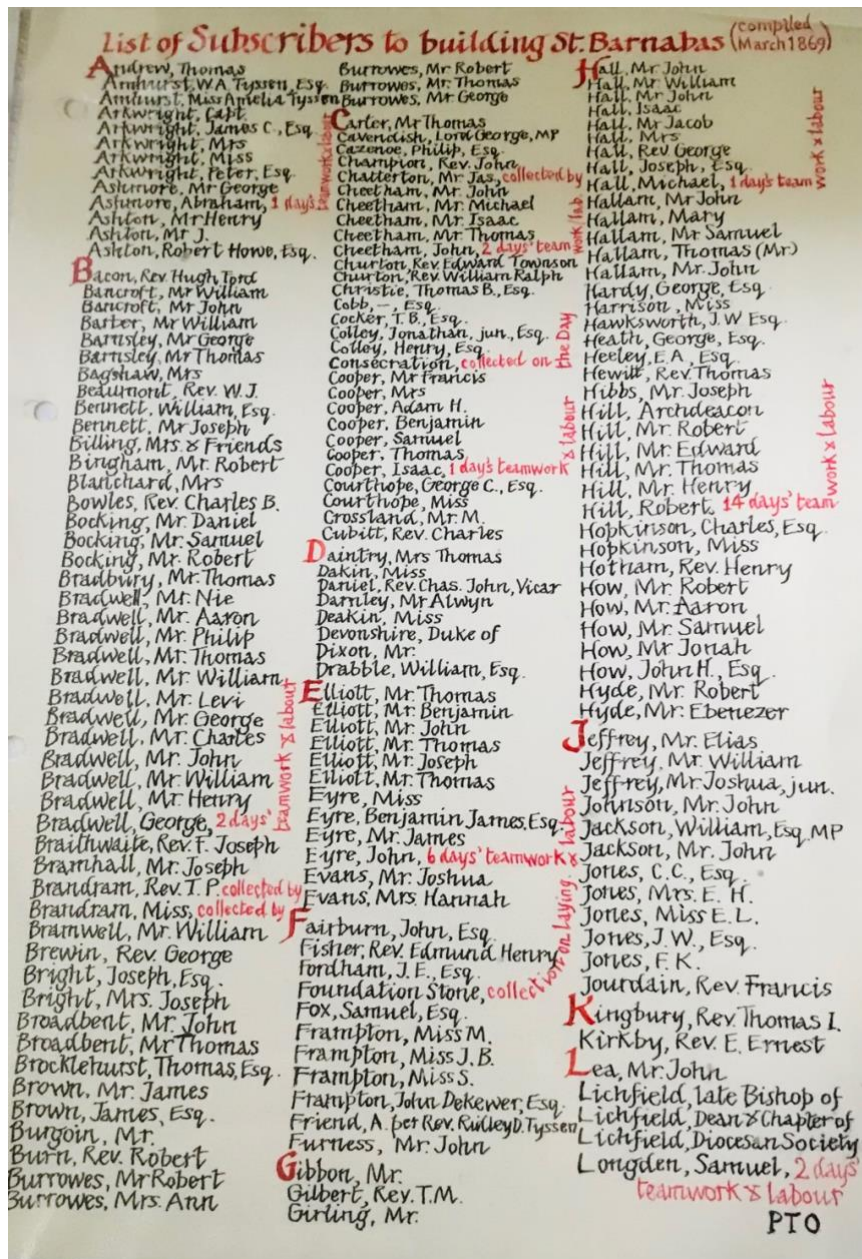 List of Subscribers to building St. Barnabas (compiled March 1869)
Andrew, Thomas
Amhurst, W.A Tyssen, Esq.
Amhurst, Miss Amelia Tyssen
Arkwright, Capt.
Arkwright, James C., Esq
Arkwright, Mrs
Arkwright, Miss
Arkwright, Peter, Esq.
Ashmore, Mr George
Ashmore, Abraham, 1 day's teamwork & labour
Ashton, Mr Henry
Ashton, Mr J.
Ashton, Robert Howe, Esq.
Bacon, Rev. Hugh Ford
Bancroft, Mr William
Bancroft, Mr John
Barber, Mr William
Barnsley, Mr George
Barnsley, Mr Thomas
Bagshaw, Mrs
Beaumont, Rev. W.J.
Bennett, William, Esq.
Bennett, Mr Joseph
Billing, Mrs. & Friends
Bingham, Mr. Robert
Blanchard, Mrs
Bowles, Rev. Charles B.
Bocking, Mr. Daniel
Bocking, Mr. Samuel
Bocking, Mr. Robert
Bradbury, Mr. Thomas
Bradwell, Mr. Nie
Bradwell, Mr. Aaron
Bradwell, Mr. Philip
Bradwell, Mr. Thomas
Bradwell, Mr. William
Bradwell, Mr. Levi
Bradwell, Mr. George
Bradwell, Mr. Charles
Bradwell, Mr. John
Bradwell, Mr. William
Bradwell, Mr. Henry
Bradwell, George, 2 days' teamwork & labour
Braithwaite, Rev. F. Joseph
Bramhall, Mr. Joseph
Brandram, Rev. T. P. collected by
Brandram, Miss, collected by
Bramwell, Mr. William
Brewin, Rev. George
Bright, Joseph, Esq.
Bright, Mrs. Joseph
Broadbent, Mr. John
Broadbent, Mr Thomas
Brocklehurst, Thomas, Esq.
Brown, Mr. James
Brown, James, Esq.
Burgoin, Mr.
Burn, Rev. Robert
Burrowes, Mr Robert
Burrowes, Mrs. Ann
Burrowes, Mr. Robert
Burrowes, Mr. Thomas
Burrowes, Mr. George
Carter, Mr Thomas
Cavendish, Lord George, MP
Cazenoe, Philip, Esq.
Champion, Rev. John
Chatterton, Mr Jas., collected by
Cheetham, Mr. John
Cheetham, Mr. Michael
Cheetham, Mr. Isaac
Cheetham, Mr. Thomas
Cheetham, John, 2 days' team work/lab.
Churton, Rev. Edward Townson
Churton, Rev. William Ralph
Christie, Thomas B., Esq.
Cobb, –, Esq.
Cocker, T.B., Esq.
Colley, Jonathan, jun., Esq.
Colley, Henry, Esq.
Consecration, collected on the Day
Cooper, Mr Francis
Cooper, Mrs
Cooper, Adam H.
Cooper, Benjamin
Cooper, Samuel
Cooper, Thomas
Cooper, Isaac, 1 day's teamwork & labour
Courthope, George C., Esq.
Courthope, Miss
Crossland, Mr. M.
Cubitt, Rev. Charles
Daintry, Mrs Thomas
Dakin, Miss
Daniel, Rev. Chas. John, Vicar
Darnley, Mr Alwyn
Deakin, Miss
Devonshire, Duke of
Dixon, Mr.
Drabble, William, Esq.
Elliott, Mr. Thomas
Elliott, Mr. Benjamin
Elliott, Mr. John
Elliott, Mr. Thomas
Elliott, Mr. Joseph
Elliott, Mr. Thomas
Eyre, Miss
Eyre, Benjamin James, Esq.
Eyre, Mr. James
Eyre, John, 6 days' teamwork & labour
Evans, Mr. Joshua
Evans, Mrs. Hannah
Fairburn, John, Esq.
Fisher, Rev. Edmund Henry
Fordham, J.E., Esq.
Foundation Stone, collection on laying
Fox, Samuel, Esq.
Frampton, Miss M.
Frampton, Miss J. B.
Frampton, Miss S.
Frampton, John Dekewer, Esq.
Friend, A. per Rev. Ridley D. Tyssen
Furness, Mr. John
Gibbon, Mr.
Gilbert, Rev. T.M.
Girling, Mr.
Hall, Mr John
Hall, Mr William
Hall, Mr John
Hall, Isaac
Hall, Mr Jacob
Hall, Mrs
Hall, Rev George
Hall, Joseph, Esq.
Hall, Michael, 1 day's team work & labour
Hallam, Mr John
Hallam, Mary
Hallam, Mr Samuel
Hallam, Thomas (Mr)
Hallam, Mr. John
Hardy, George, Esq.
Harrison, Miss
Hawksworth, J.W Esq.
Heath, George, Esq.
Heeley, E.A., Esq.
Hewitt, Rev. Thomas
Hibbs, Mr. Joseph
Hill, Archdeacon
Hill, Mr. Robert
Hill, Mr. Edward
Hill, Mr. Thomas
Hill, Mr. Henry
Hill, Robert, 14 days' team work & labour
Hopkinson, Charles, Esq.
Hopkinson, Miss
Hotham, Rev. Henry
How, Mr. Robert
How, Mr. Aaron
How, Mr. Samuel
How, Mr Jonah
How, John H., Esq.
Hyde, Mr. Robert
Hyde, Mr. Ebenezer
Jeffrey, Mr. Elias
Jeffrey, Mr. William
Jeffrey, Mr. Joshua, jun.
Johnson, Mr. John
Jackson, William, Esq. MP
Jackson, Mr. John
Jones, C.C., Esq.
Jones, Mrs. E. H.
Jones, Miss E.L.
Jones, J.W., Esq.
Jones, F.K.
Jourdain, Rev. Francis
Kingbury, Rev. Thomas I.
Kirkby, Rev. E. Ernest
Lea, Mr. John
Lichfield, late Bishop of
Lichfield, Dean & Chapter of
Lichfield, Diocesan Society
Longden, Samuel, 2 days'
teamwork & labour
PTO